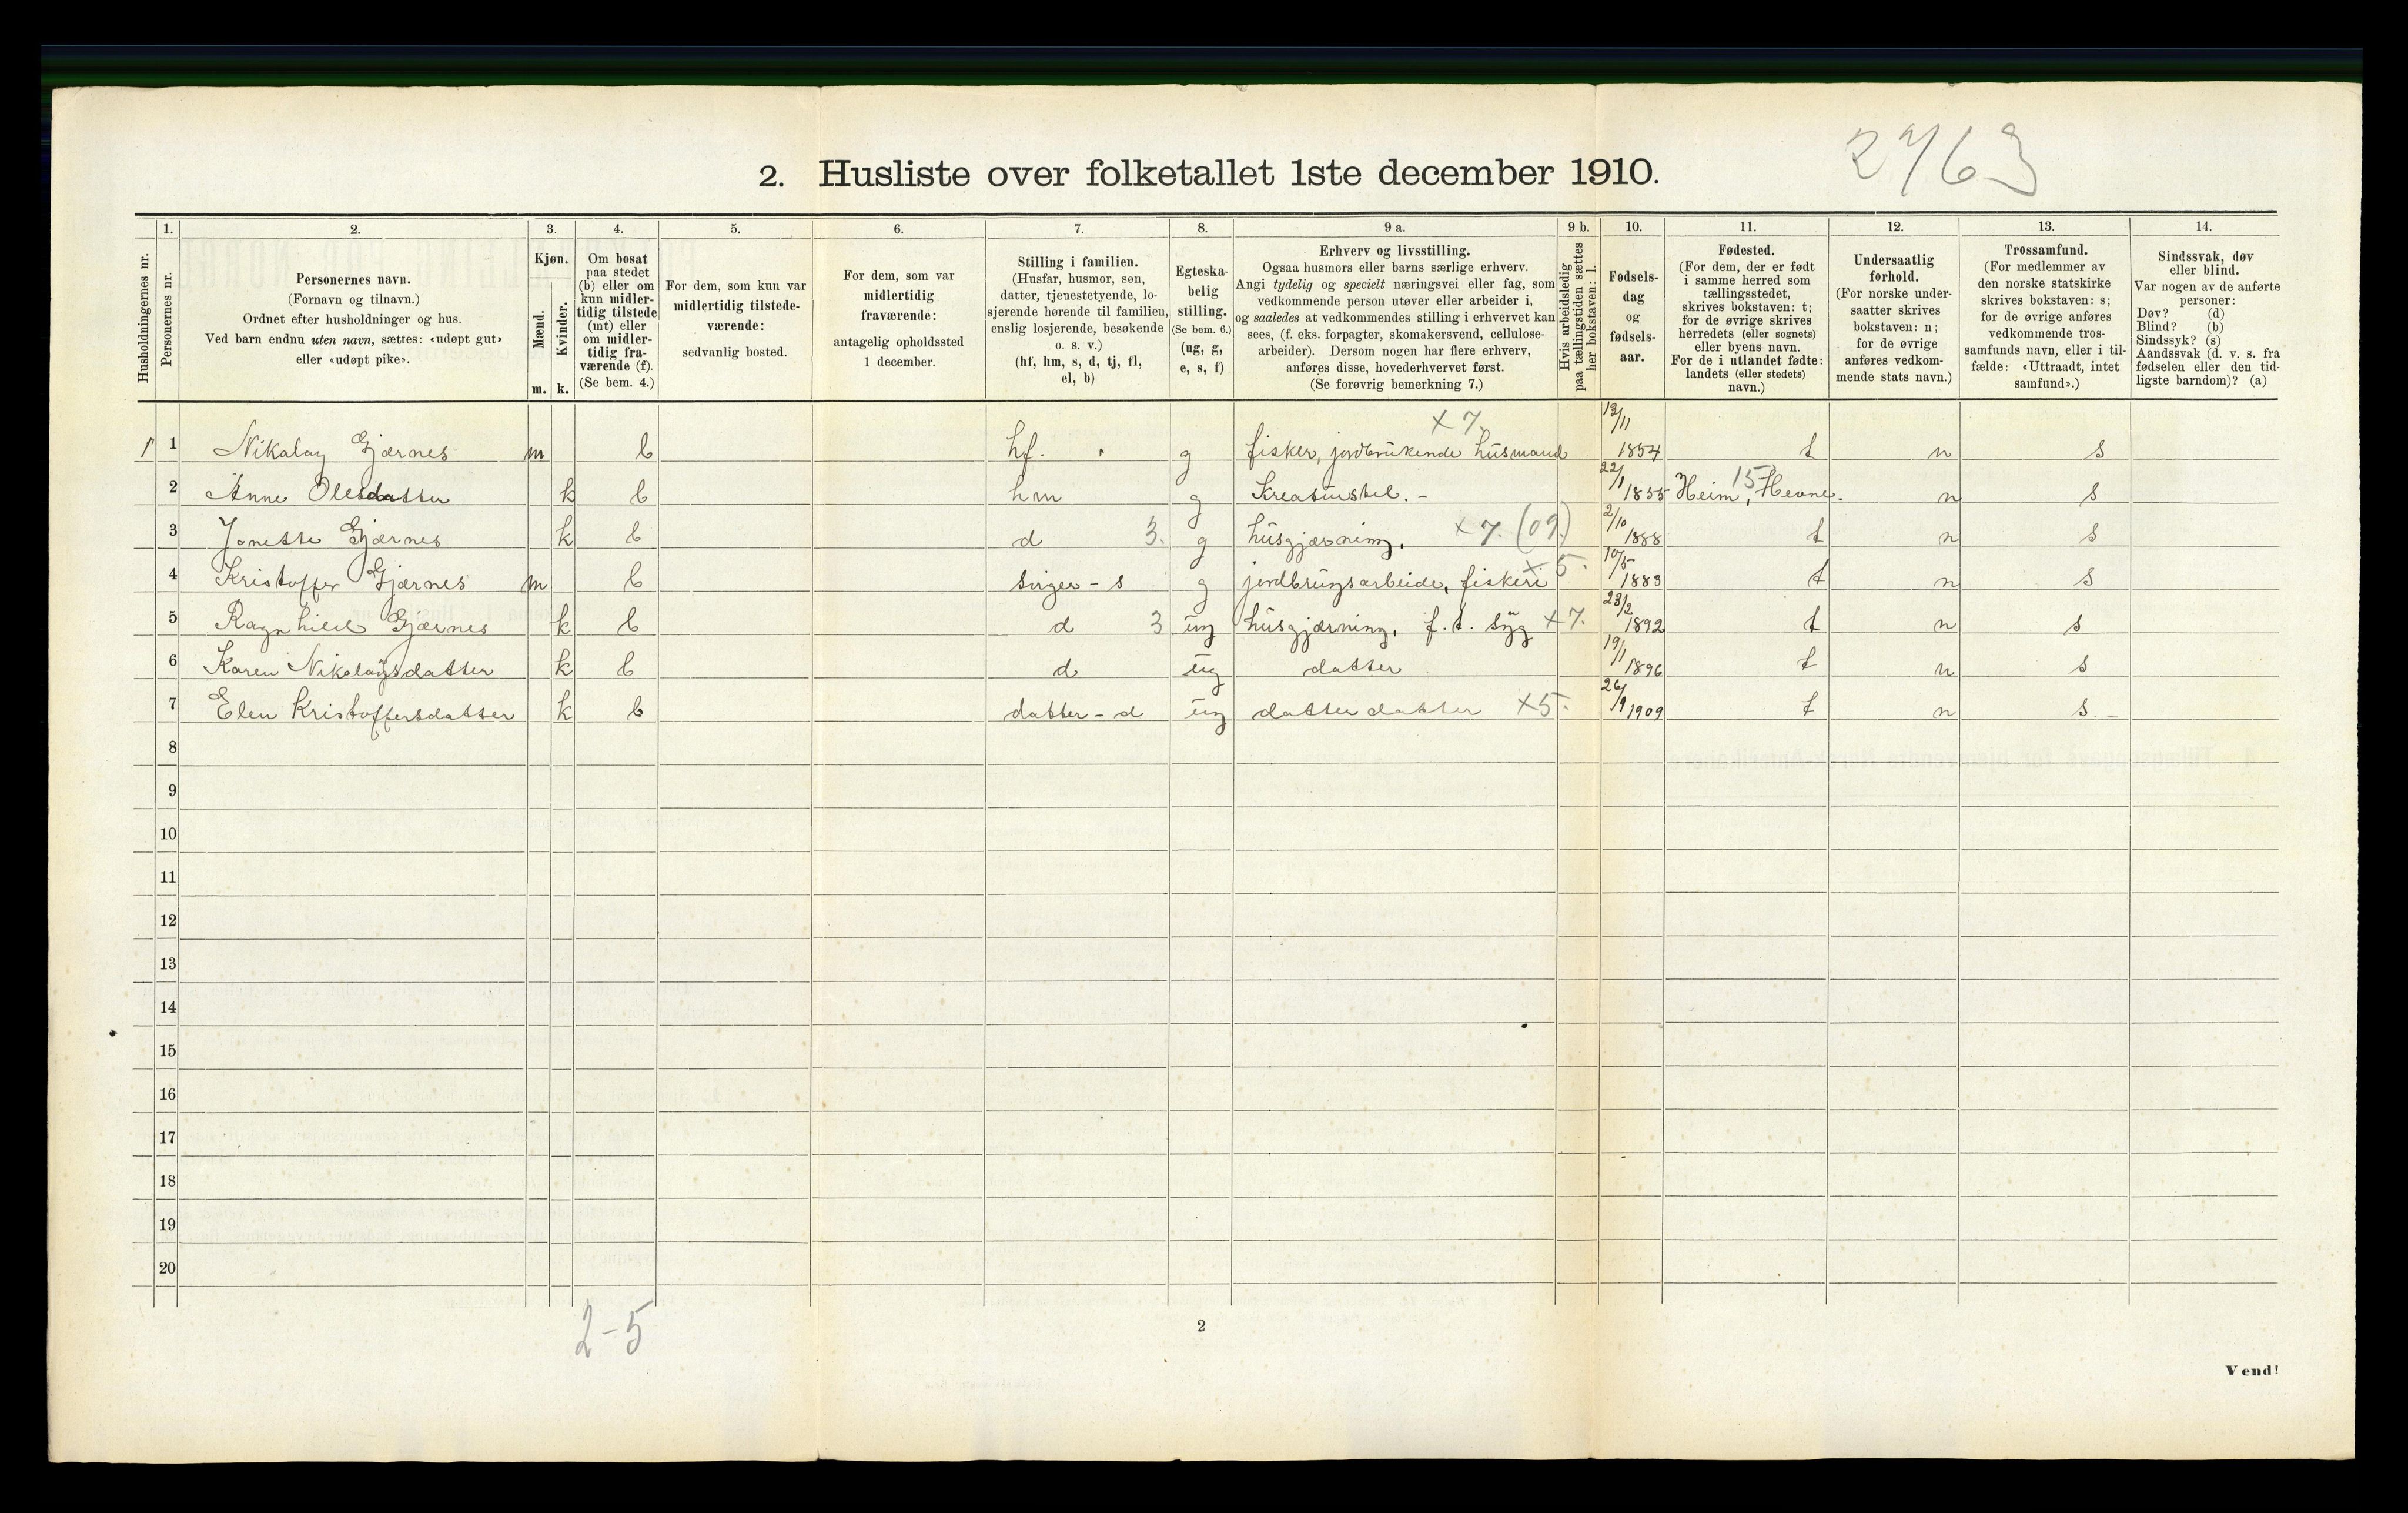 2763
2. Husliste over folketallet 1ste december 1910.
1. 2. 3. 4. 5. 6. 7. 8. 9 a. 9 b. 10. 11. 12. 13. 14.
Husholdningernes nr.
Personernes nr.
Personernes navn.
(Fornavn og tilnavn.)
Ordnet efter husholdninger og hus.
Ved barn endnu uten navn, sættes: «udøpt gut»
eller «udøpt pike».
Kjøn.
Mænd.
m.
Kvinder.
k.
Om bosat
paa stedet
(b) eller om
kun midler-
tidig tilstede
(mt) eller
om midler-
tidig fra-
værende (f).
(Se bem. 4.)
For dem, som kun var
midlertidig tilstede-
værende:
sedvanlig bosted.
For dem, som var
midlertidig
fraværende:
antagelig opholdssted
1 december.
Stilling i familien.
(Husfar, husmor, søn,
datter, tjenestetyende, lo-
sjerende hørende til familien,
enslig losjerende, besøkende
o. s. v.)
(hf, hm, s, d, tj, fl,
el, b)
Egteska-
belig
stilling.
(Se bem. 6.)
(ug, g,
e, s, f)
Erhverv og livsstilling.
Ogsaa husmors eller barns særlige erhverv.
Angi tydelig og specielt næringsvei eller fag, som
vedkommende person utøver eller arbeider i,
og saaledes at vedkommendes stilling i erhvervet kan
sees, (f. eks. forpagter, skomakersvend, cellulose-
arbeider). Dersom nogen har flere erhverv,
anføres disse, hovederhvervet først.
(Se forøvrig bemerkning 7.)
Hvis arbeidsledig
paa tællingstiden sættes
her bokstaven: l.
Fødsels-
dag
og
fødsels-
aar.
Fødested.
(For dem, der er født
i samme herred som
tællingsstedet,
skrives bokstaven: t;
for de øvrige skrives
herredets (eller sognets)
eller byens navn.
For de i utlandet fødte:
landets (eller stedets)
navn.)
Undersaatlig
forhold.
(For norske under-
saatter skrives
bokstaven: n;
for de øvrige
anføres vedkom-
mende stats navn.)
Trossamfund.
(For medlemmer av
den norske statskirke
skrives bokstaven: s;
for de øvrige anføres
vedkommende tros-
samfunds navn, eller i til-
fælde: «Uttraadt, intet
samfund».)
Sindssvak, døv
eller blind.
Var nogen av de anførte
personer:
Døv? (d)
Blind? (b)
Sindssyk? (s)
Aandssvak (d. v. s. fra
fødselen eller den tid-
ligste barndom)? (a)
1 1 Nikolay Gjærnes m b hf. g fisker, jordbrukende husmand x 7. 13/11 1854 t n s
2 Anne Olesdatter k b hm g Kreaturstel. - 22/1 1855 Heim, Hevne. 15 n s
3 Jonette Gjærnes k b d 3. g husgjærning, x 7. (09.) 2/10 1888 t n s
4 Kristoffer Gjærnes m b sviger - s g jordbrugsarbeide, fiskeri x 5. 10/5 1883 t n s
5 Ragnhild Gjærnes k b d 3 ug husgjærning, f. t. syg x 7. 23/2 1892 t n s
6 Karen Nikolaysdatter k b d ug datter 19/1 1896 t n s
7 Elen Kristoffersdatter k b datter - d ug datterdatter x 5. 26/9 1909 t n s. -
8
9
10
11
12
13
14
15
16
17
18
19
20
2-5
2
Vend!